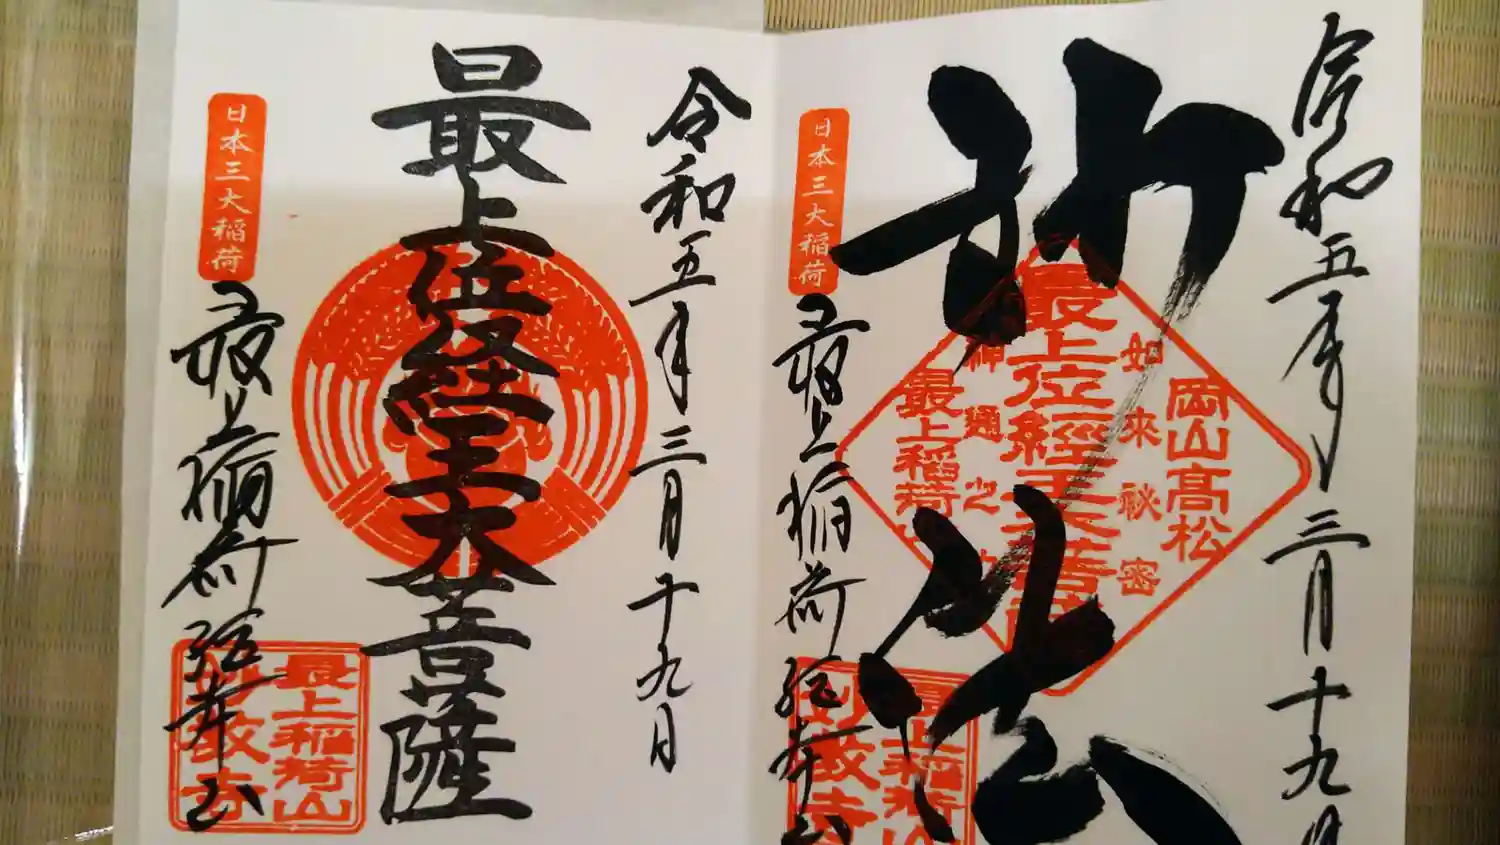 令和五年三月十九日
妙法
岡山高松
如來秘密
最上位經王大菩薩
神通之力
最上稲荷
日本三大稲荷
最上稲荷総本山
最上稲荷山
妙教寺
令和五年三月十九日
最上位経王大菩薩
日本三大稲荷
最上稲荷総本山
最上稲荷山
妙教寺